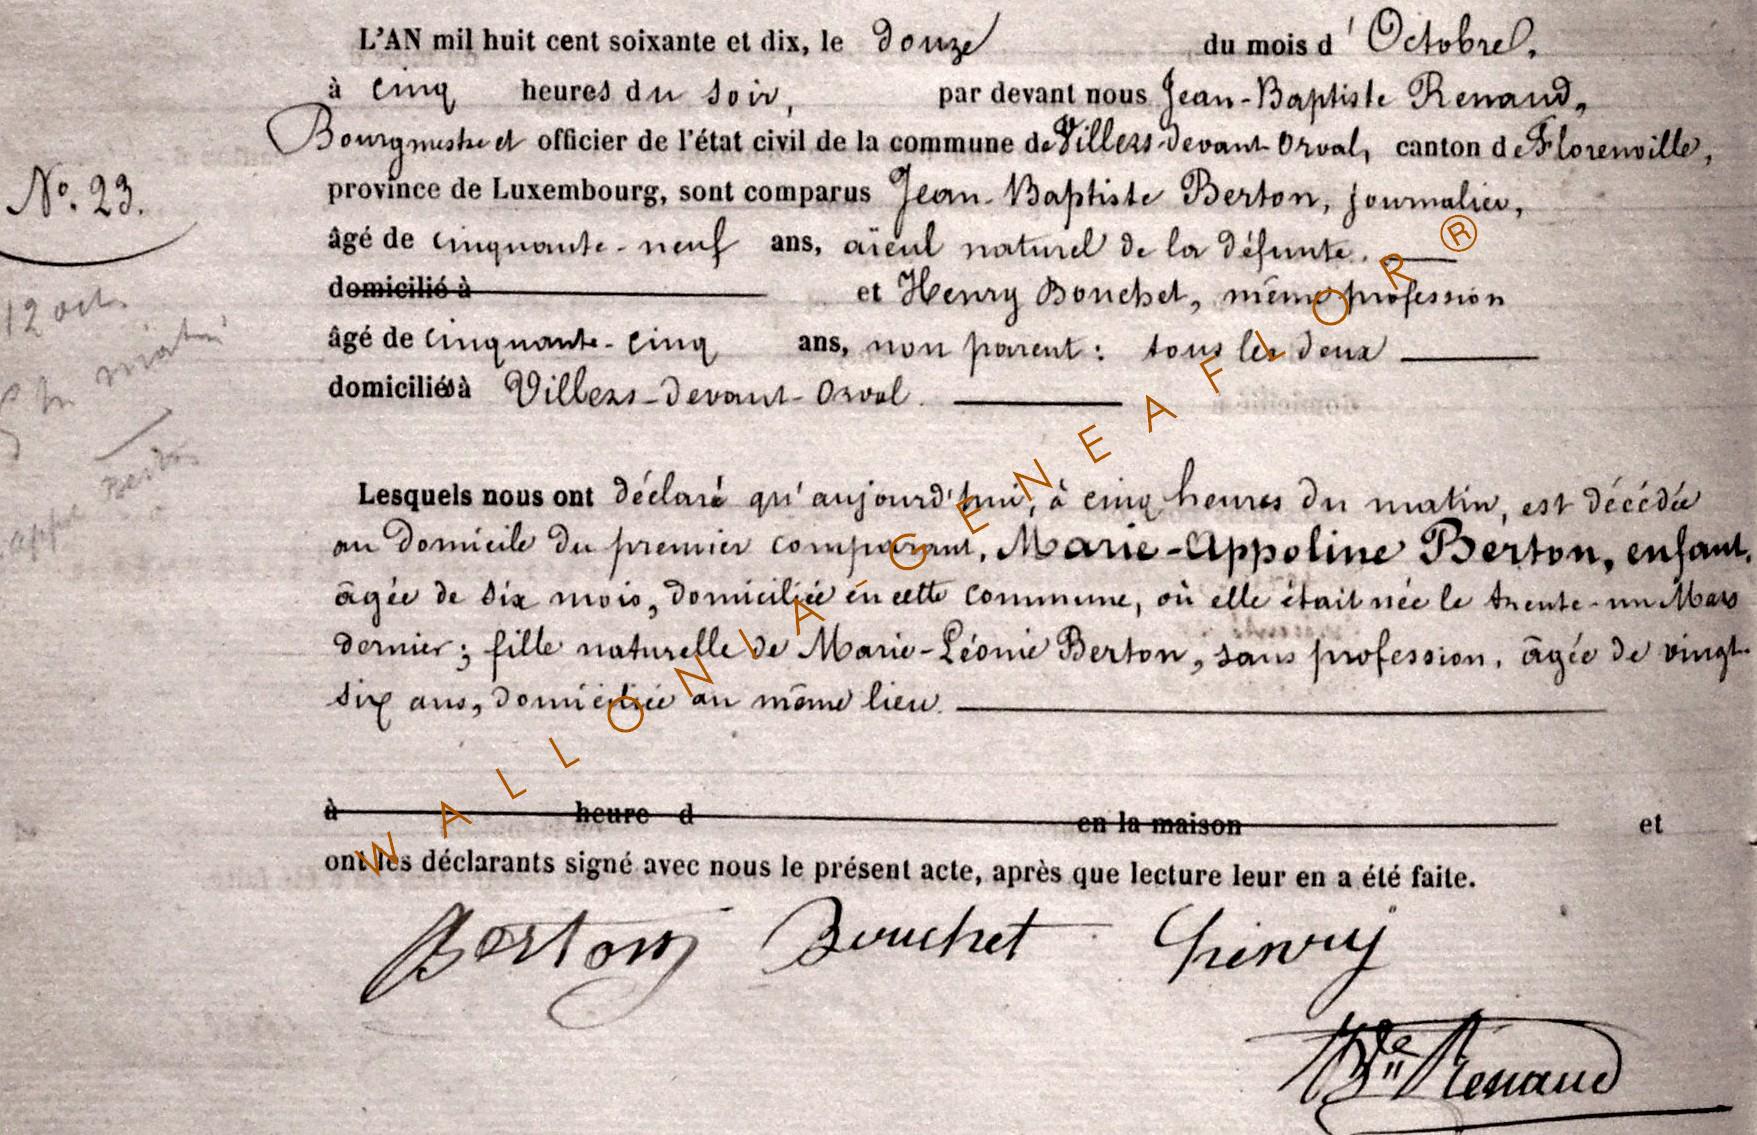 L'AN mil huit cent soixante et dix, le douze du mois d'Octobre,
à cinq heures du soir, par devant nous Jean-Baptiste Renaud,
Bourgmestre et officier de l'état civil de la commune de Villers-devant-Orval, canton de Florenville,
province de Luxembourg, sont comparus Jean-Baptiste Berton, journalier,
No. 23.
âgé de cinquante-neuf ans, aïeul naturel de la défunte.
domicilié à et Henry Bouchet, même profession
12 oct.
âgé de cinquante-cinq ans, non parent : tous les deux
matin
domiciliés à Villers-devant-Orval.
Berton
appo
Lesquels nous ont déclaré qu'aujourd'hui, à cinq heures du matin, est décédée
au domicile du premier comparant, Marie-Appoline Berton, enfant,
âgée de six mois, domiciliée en cette commune, où elle était née le trente-un Mars
dernier ; fille naturelle de Marie-Léonie Berton, sans profession, âgée de vingt-
six ans, domiciliée au même lieu.
à heure d en la maison et
ont les déclarants signé avec nous le présent acte, après que lecture leur en a été faite.
Berton Bouchet henry
Renaud
WALLONIA GENEAFLOR®